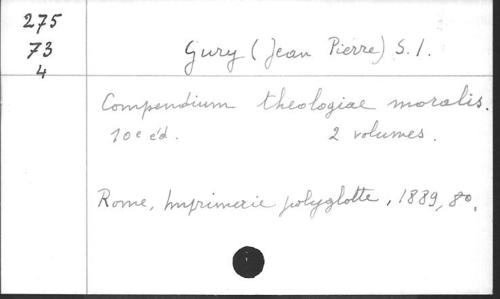 275
73
4
Gury (Jean Pierre) S.J.
Compendium theologiae moralis.
10e éd. 2 volumes.
Rome, Imprimerie polyglotte, 1889, 8o.